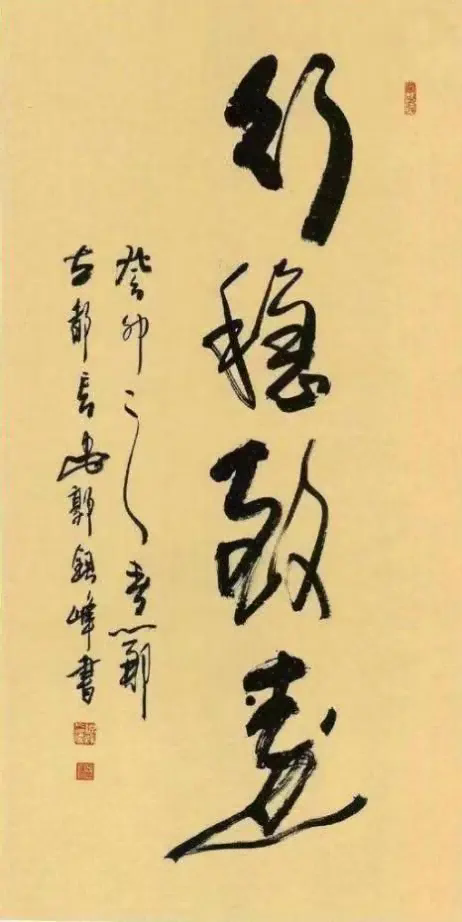 行稳致遠
癸卯之
古都長安郭銀峰書